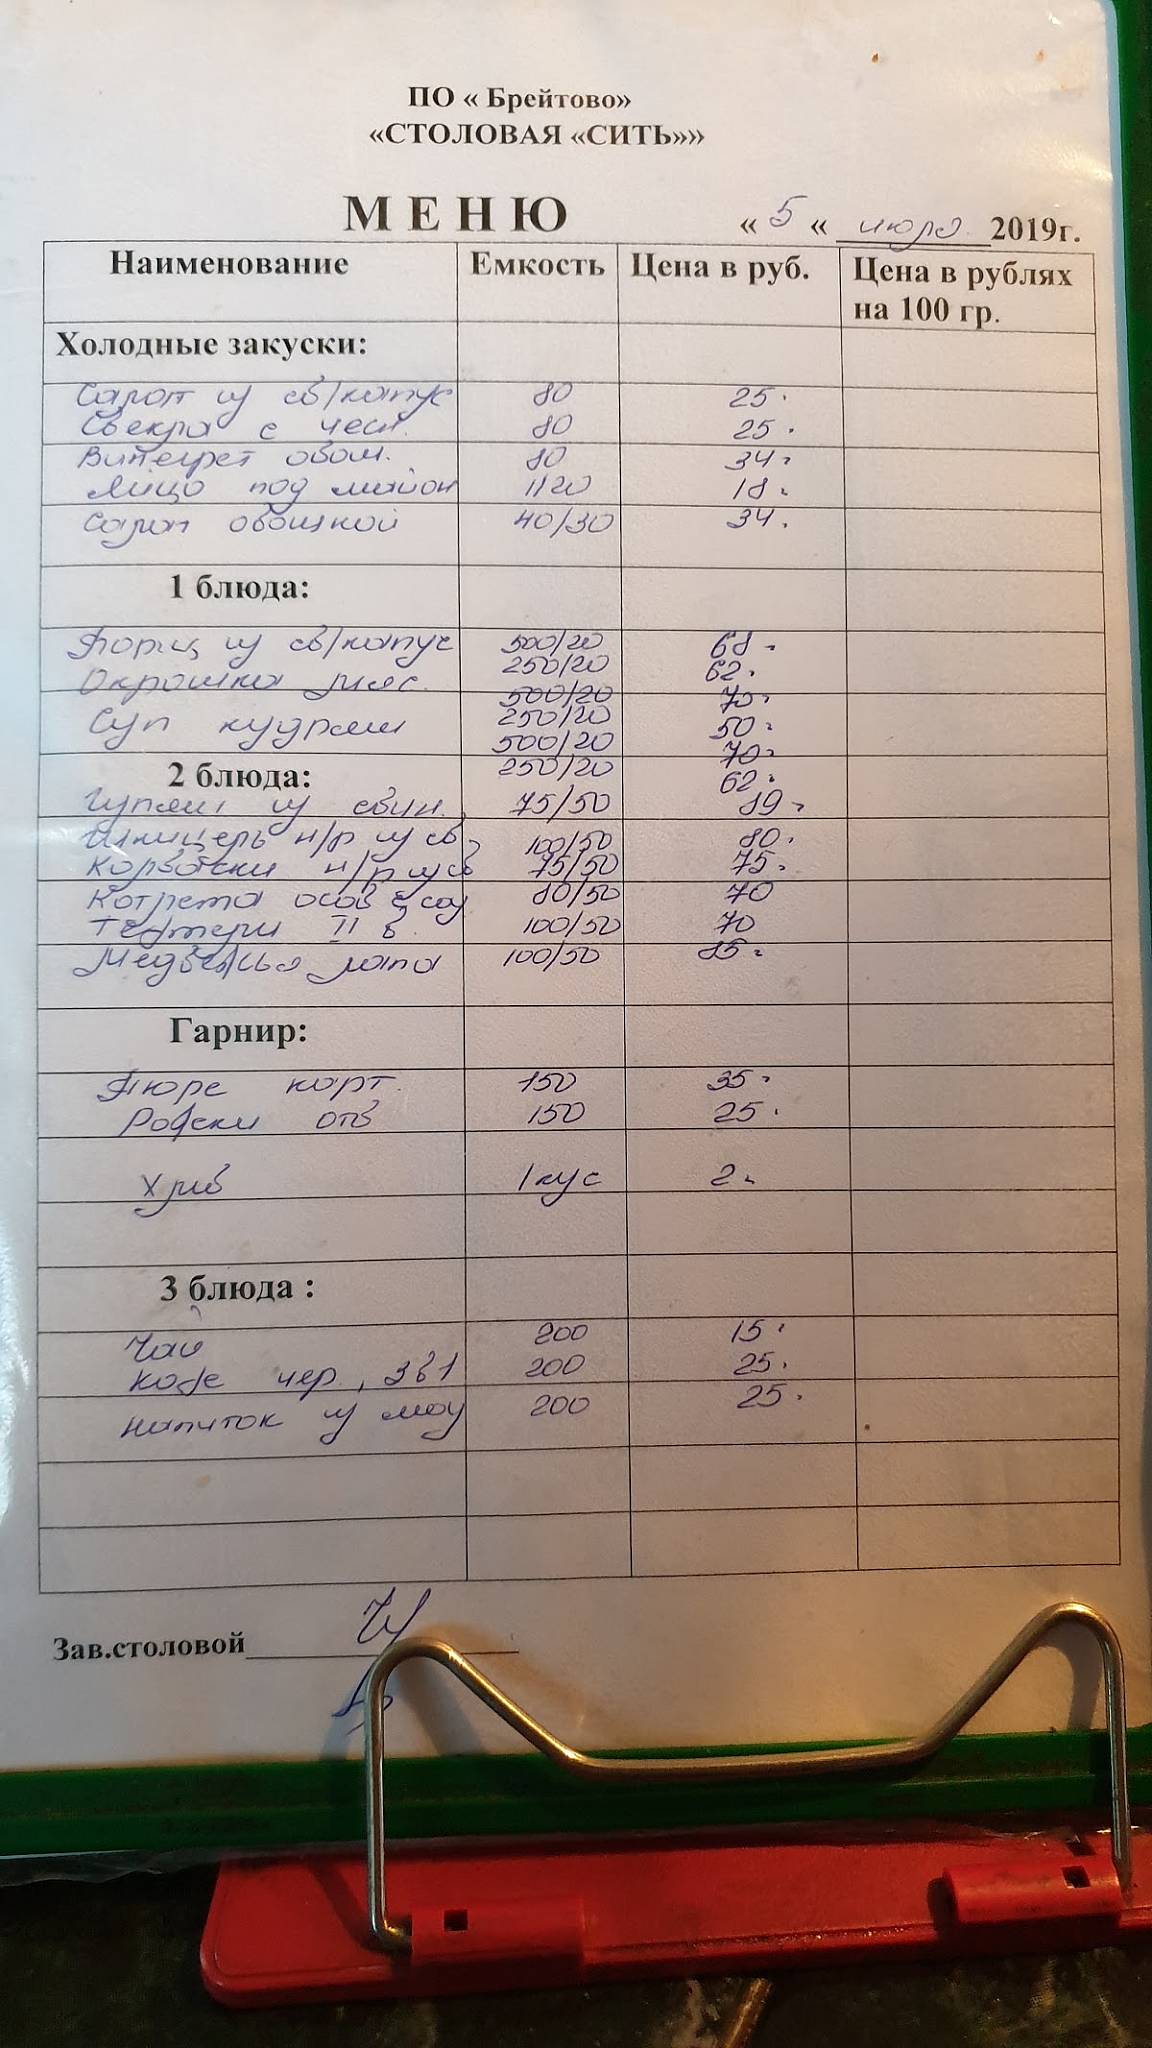 ПО « Брейтово»
«СТОЛОВАЯ «СИТЬ»»
МЕНЮ « 5 « июля 2019г.
Наименование Емкость Цена в руб. Цена в рублях на 100 гр.
Холодные закуски:
Салат из св/капус 80 25
Свекла с чесн. 80 25
Винегрет овощ. 80 34
Яйцо под майон 1/20 18
Салат овощной 40/30 34
1 блюда:
Борщ из св/капус 500/20 68
250/20 62
Окрошка мяс. 500/20 70
250/20 50
Суп 500/20 70
250/20 62
2 блюда:
Гуляш из свин. 75/50 89
Шницель н/р из св 100/50 80
Колбаски н/р из св 75/50 75
Котлета 80/50 70
Тефтели II в. 100/50 70
Медвежья лапа 100/50 85
Гарнир:
Пюре карт. 150 35
Рожки отв 150 25
Хлеб 1 кус 2
3 блюда :
Чай 200 15
Кофе чер, 3в1 200 25
Напиток из 200 25
Зав.столовой